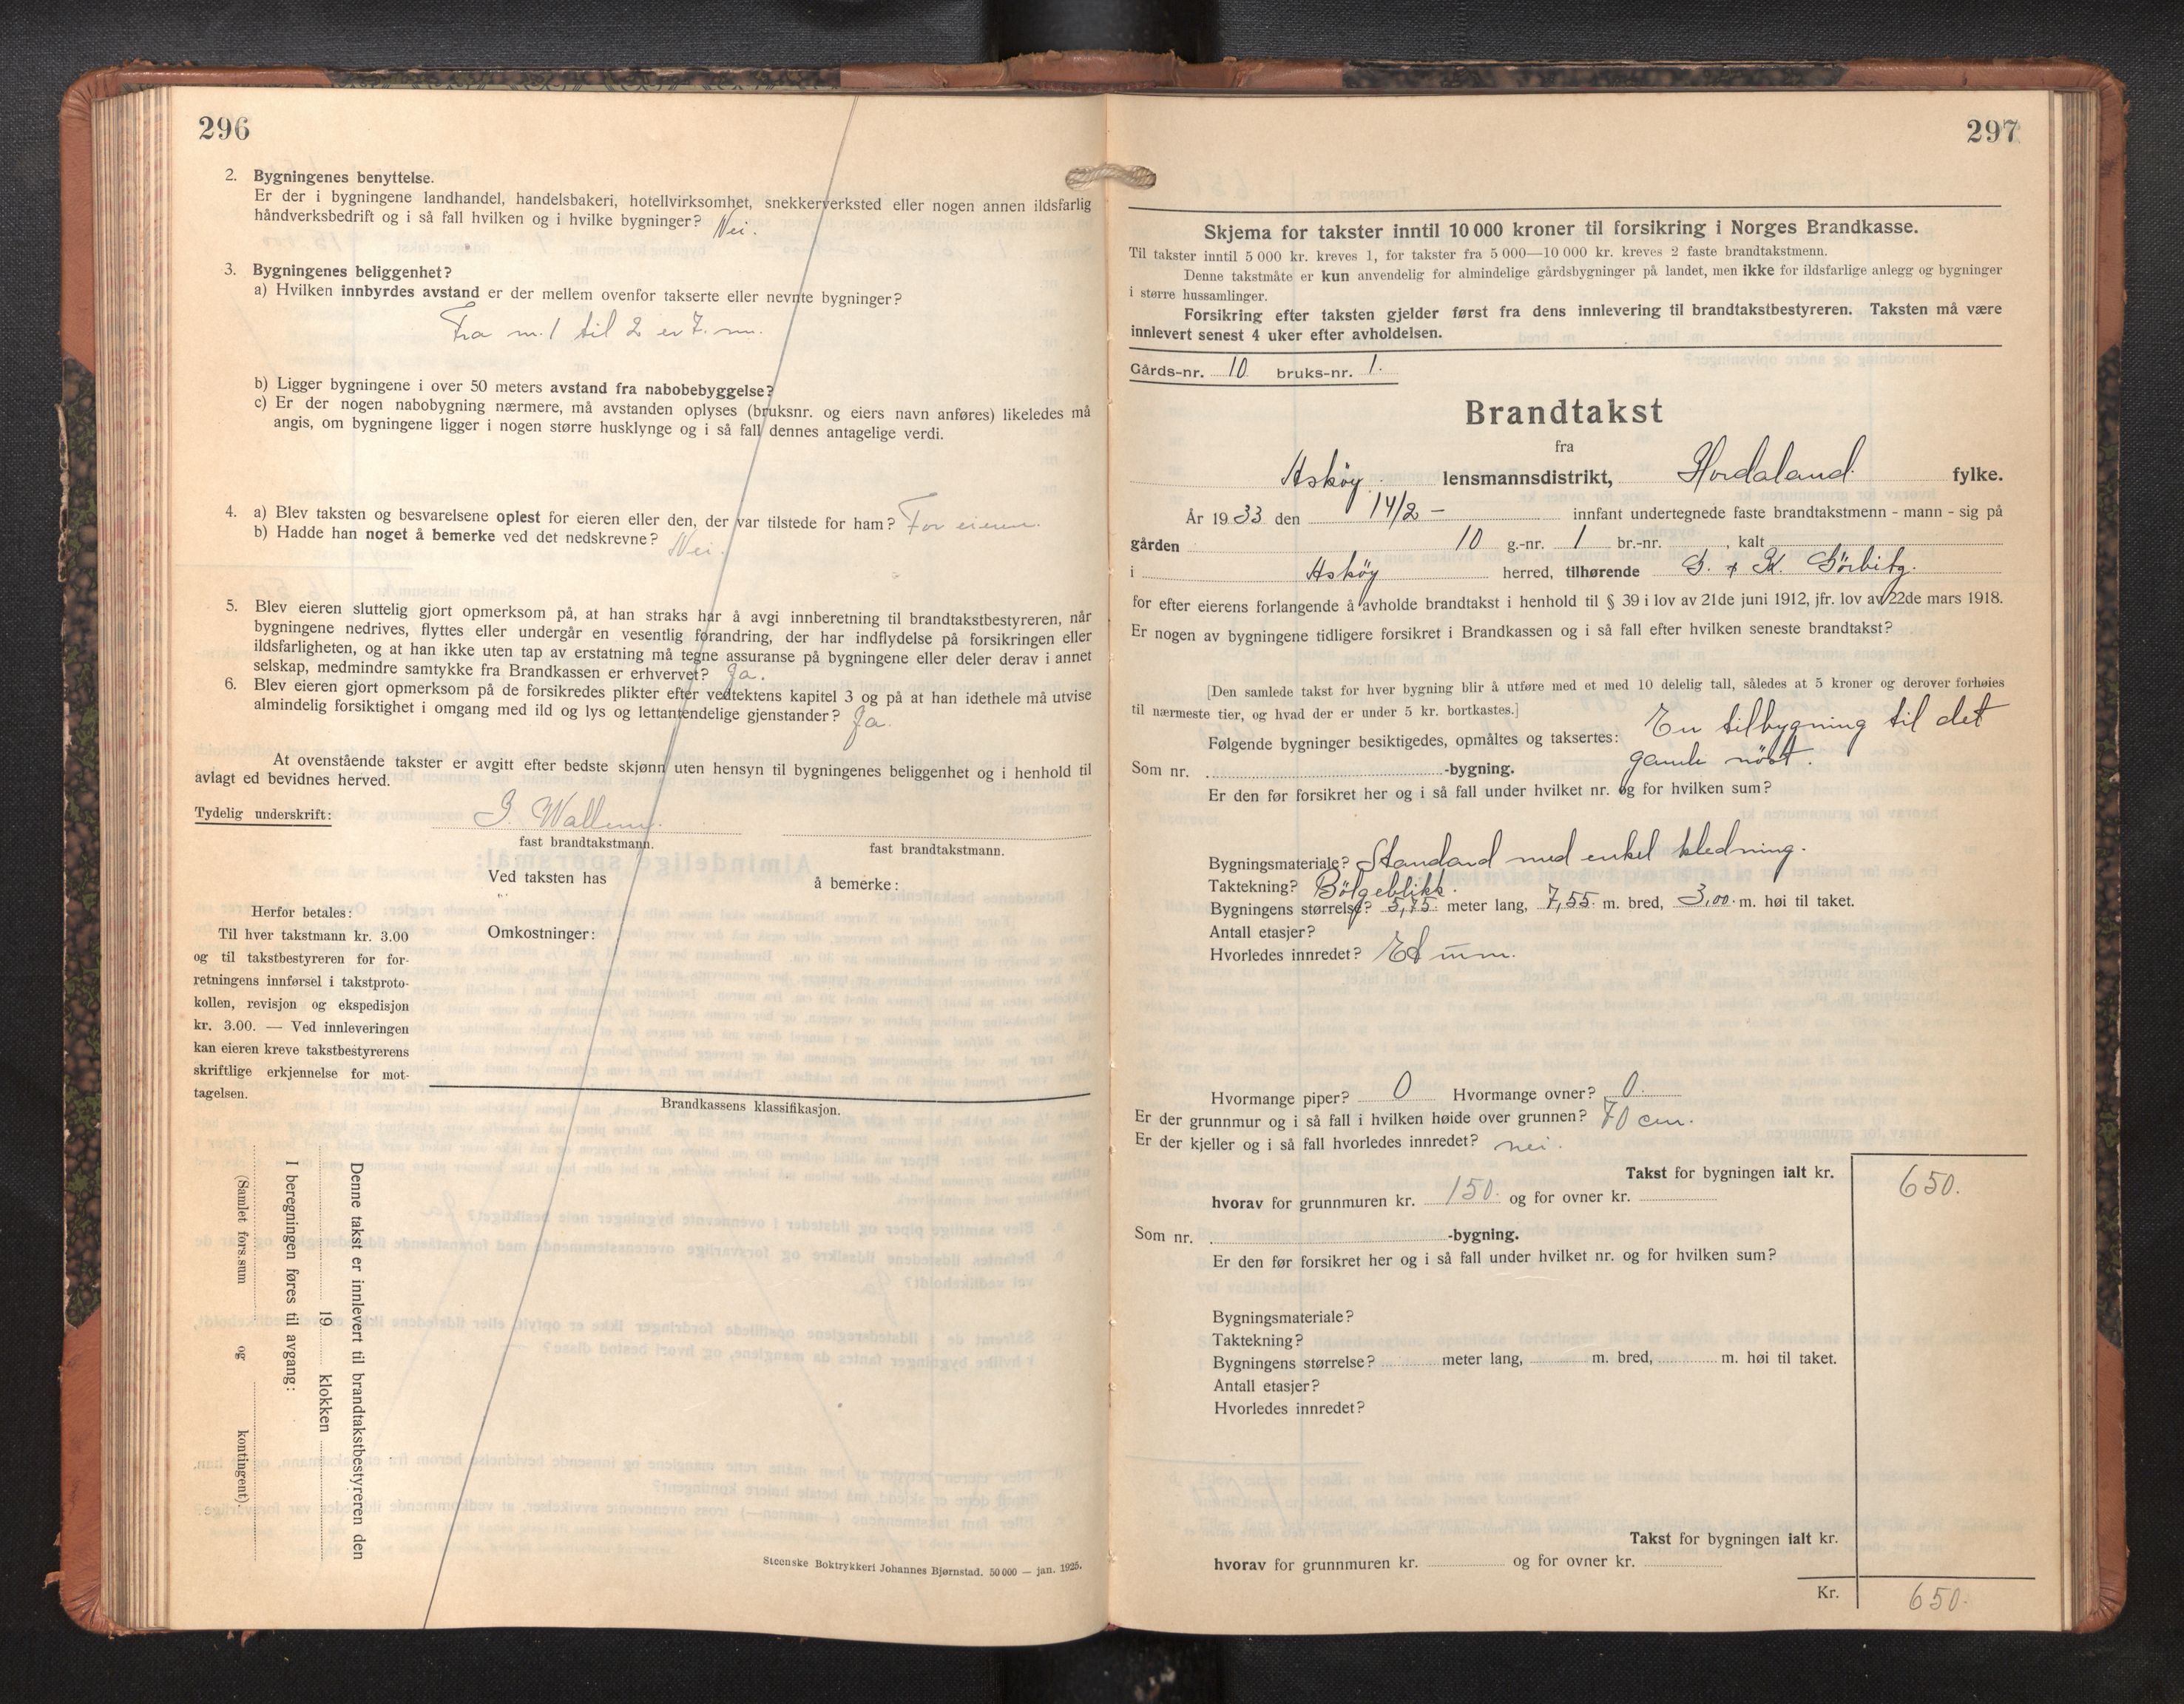 296
2. Bygningenes benyttelse.
Er der i bygningene landhandel, handelsbakeri, hotellvirksomhet, snekkerverksted eller nogen annen ildsfarlig
håndverksbedrift og i så fall hvilken og i hvilke bygninger? Nei.
3. Bygningenes beliggenhet?
a) Hvilken innbyrdes avstand er der mellem ovenfor takserte eller nevnte bygninger?
Fra nr. 1 til 2 er 7. m.
b) Ligger bygningene i over 50 meters avstand fra nabobebyggelse?
c) Er der nogen nabobygning nærmere, må avstanden oplyses (bruksnr. og eiers navn anføres) likeledes må
angis, om bygningene ligger i nogen større husklynge og i så fall dennes antagelige verdi.
4. a) Blev taksten og besvarelsene oplest for eieren eller den, der var tilstede for ham? For eieren.
b) Hadde han noget å bemerke ved det nedskrevne? Nei.
5. Blev eieren sluttelig gjort opmerksom på, at han straks har å avgi innberetning til brandtakstbestyreren, når
bygningene nedrives, flyttes eller undergår en vesentlig forandring, der har indflydelse på forsikringen eller
ildsfarligheten, og at han ikke uten tap av erstatning må tegne assuranse på bygningene eller deler derav i annet
selskap, medmindre samtykke fra Brandkassen er erhvervet? Ja.
6. Blev eieren gjort opmerksom på de forsikredes plikter efter vedtektens kapitel 3 og på at han idethele må utvise
almindelig forsiktighet i omgang med ild og lys og lettantendelige gjenstander? Ja.
At ovenstående takster er avgitt efter bedste skjønn uten hensyn til bygningenes beliggenhet og i henhold til
avlagt ed bevidnes herved.
Tydelig underskrift: J. Wallem.
fast brandtakstmann. fast brandtakstmann.
Ved taksten has å bemerke:
Herfor betales:
Til hver takstmann kr. 3.00
og til takstbestyreren for for-
retningens innførsel i takstproto-
kollen, revisjon og ekspedisjon
kr. 3.00. — Ved innleveringen
kan eieren kreve takstbestyrerens
skriftlige erkjennelse for mot-
tagelsen.
Omkostninger:
Brandkassens klassifikasjon.
Denne takst er innlevert til brandtakstbestyreren den
19 klokken
I beregningen føres til avgang:
(Samlet fors.sum og kontingent).
Steenske Boktrykkeri Johannes Bjørnstad. 50 000 — jan. 1925.
297
Skjema for takster inntil 10 000 kroner til forsikring i Norges Brandkasse.
Til takster inntil 5 000 kr. kreves 1, for takster fra 5 000—10 000 kr. kreves 2 faste brandtakstmenn.
Denne takstmåte er kun anvendelig for almindelige gårdsbygninger på landet, men ikke for ildsfarlige anlegg og bygninger
i større hussamlinger.
Forsikring efter taksten gjelder først fra dens innlevering til brandtakstbestyreren. Taksten må være
innlevert senest 4 uker efter avholdelsen.
Gårds-nr. 10 bruks-nr. 1.
Brandtakst
fra
Askøy lensmannsdistrikt, Hordaland fylke.
År 1933 den 14/2 – innfant undertegnede faste brandtakstmenn - mann - sig på
gården 10 g.-nr. 1 br.-nr. , kalt
i Askøy herred, tilhørende
for efter eierens forlangende å avholde brandtakst i henhold til § 39 i lov av 21de juni 1912, jfr. lov av 22de mars 1918.
Er nogen av bygningene tidligere forsikret i Brandkassen og i så fall efter hvilken seneste brandtakst?
[Den samlede takst for hver bygning blir å utføre med et med 10 delelig tall, således at 5 kroner og derover forhøies
til nærmeste tier, og hvad der er under 5 kr. bortkastes.]
Følgende bygninger besiktigedes, opmåltes og taksertes: En tilbygning til det
Som nr. -bygning. gamle nöst.
Er den før forsikret her og i så fall under hvilket nr. og for hvilken sum?
Bygningsmateriale? Standard med enkel kledning.
Taktekning? Bölgeblikk.
Bygningens størrelse? 5,75 meter lang, 7,55 m. bred, 3,00 m. høi til taket.
Antall etasjer?
Hvorledes innredet? Et rum.
Hvormange piper? 0 Hvormange ovner? 0.
Er der grunnmur og i så fall i hvilken høide over grunnen? 70 cm.
Er der kjeller og i så fall hvorledes innredet? nei.
Takst for bygningen ialt kr. 650.
hvorav for grunnmuren kr. 150. og for ovner kr.
Som nr. -bygning.
Er den før forsikret her og i så fall under hvilket nr. og for hvilken sum?
Bygningsmateriale?
Taktekning?
Bygningens størrelse? meter lang, m. bred, m. høi til taket.
Antall etasjer?
Hvorledes innredet?
Takst for bygningen ialt kr.
hvorav for grunnmuren kr. og for ovner kr.
Kr. 650.